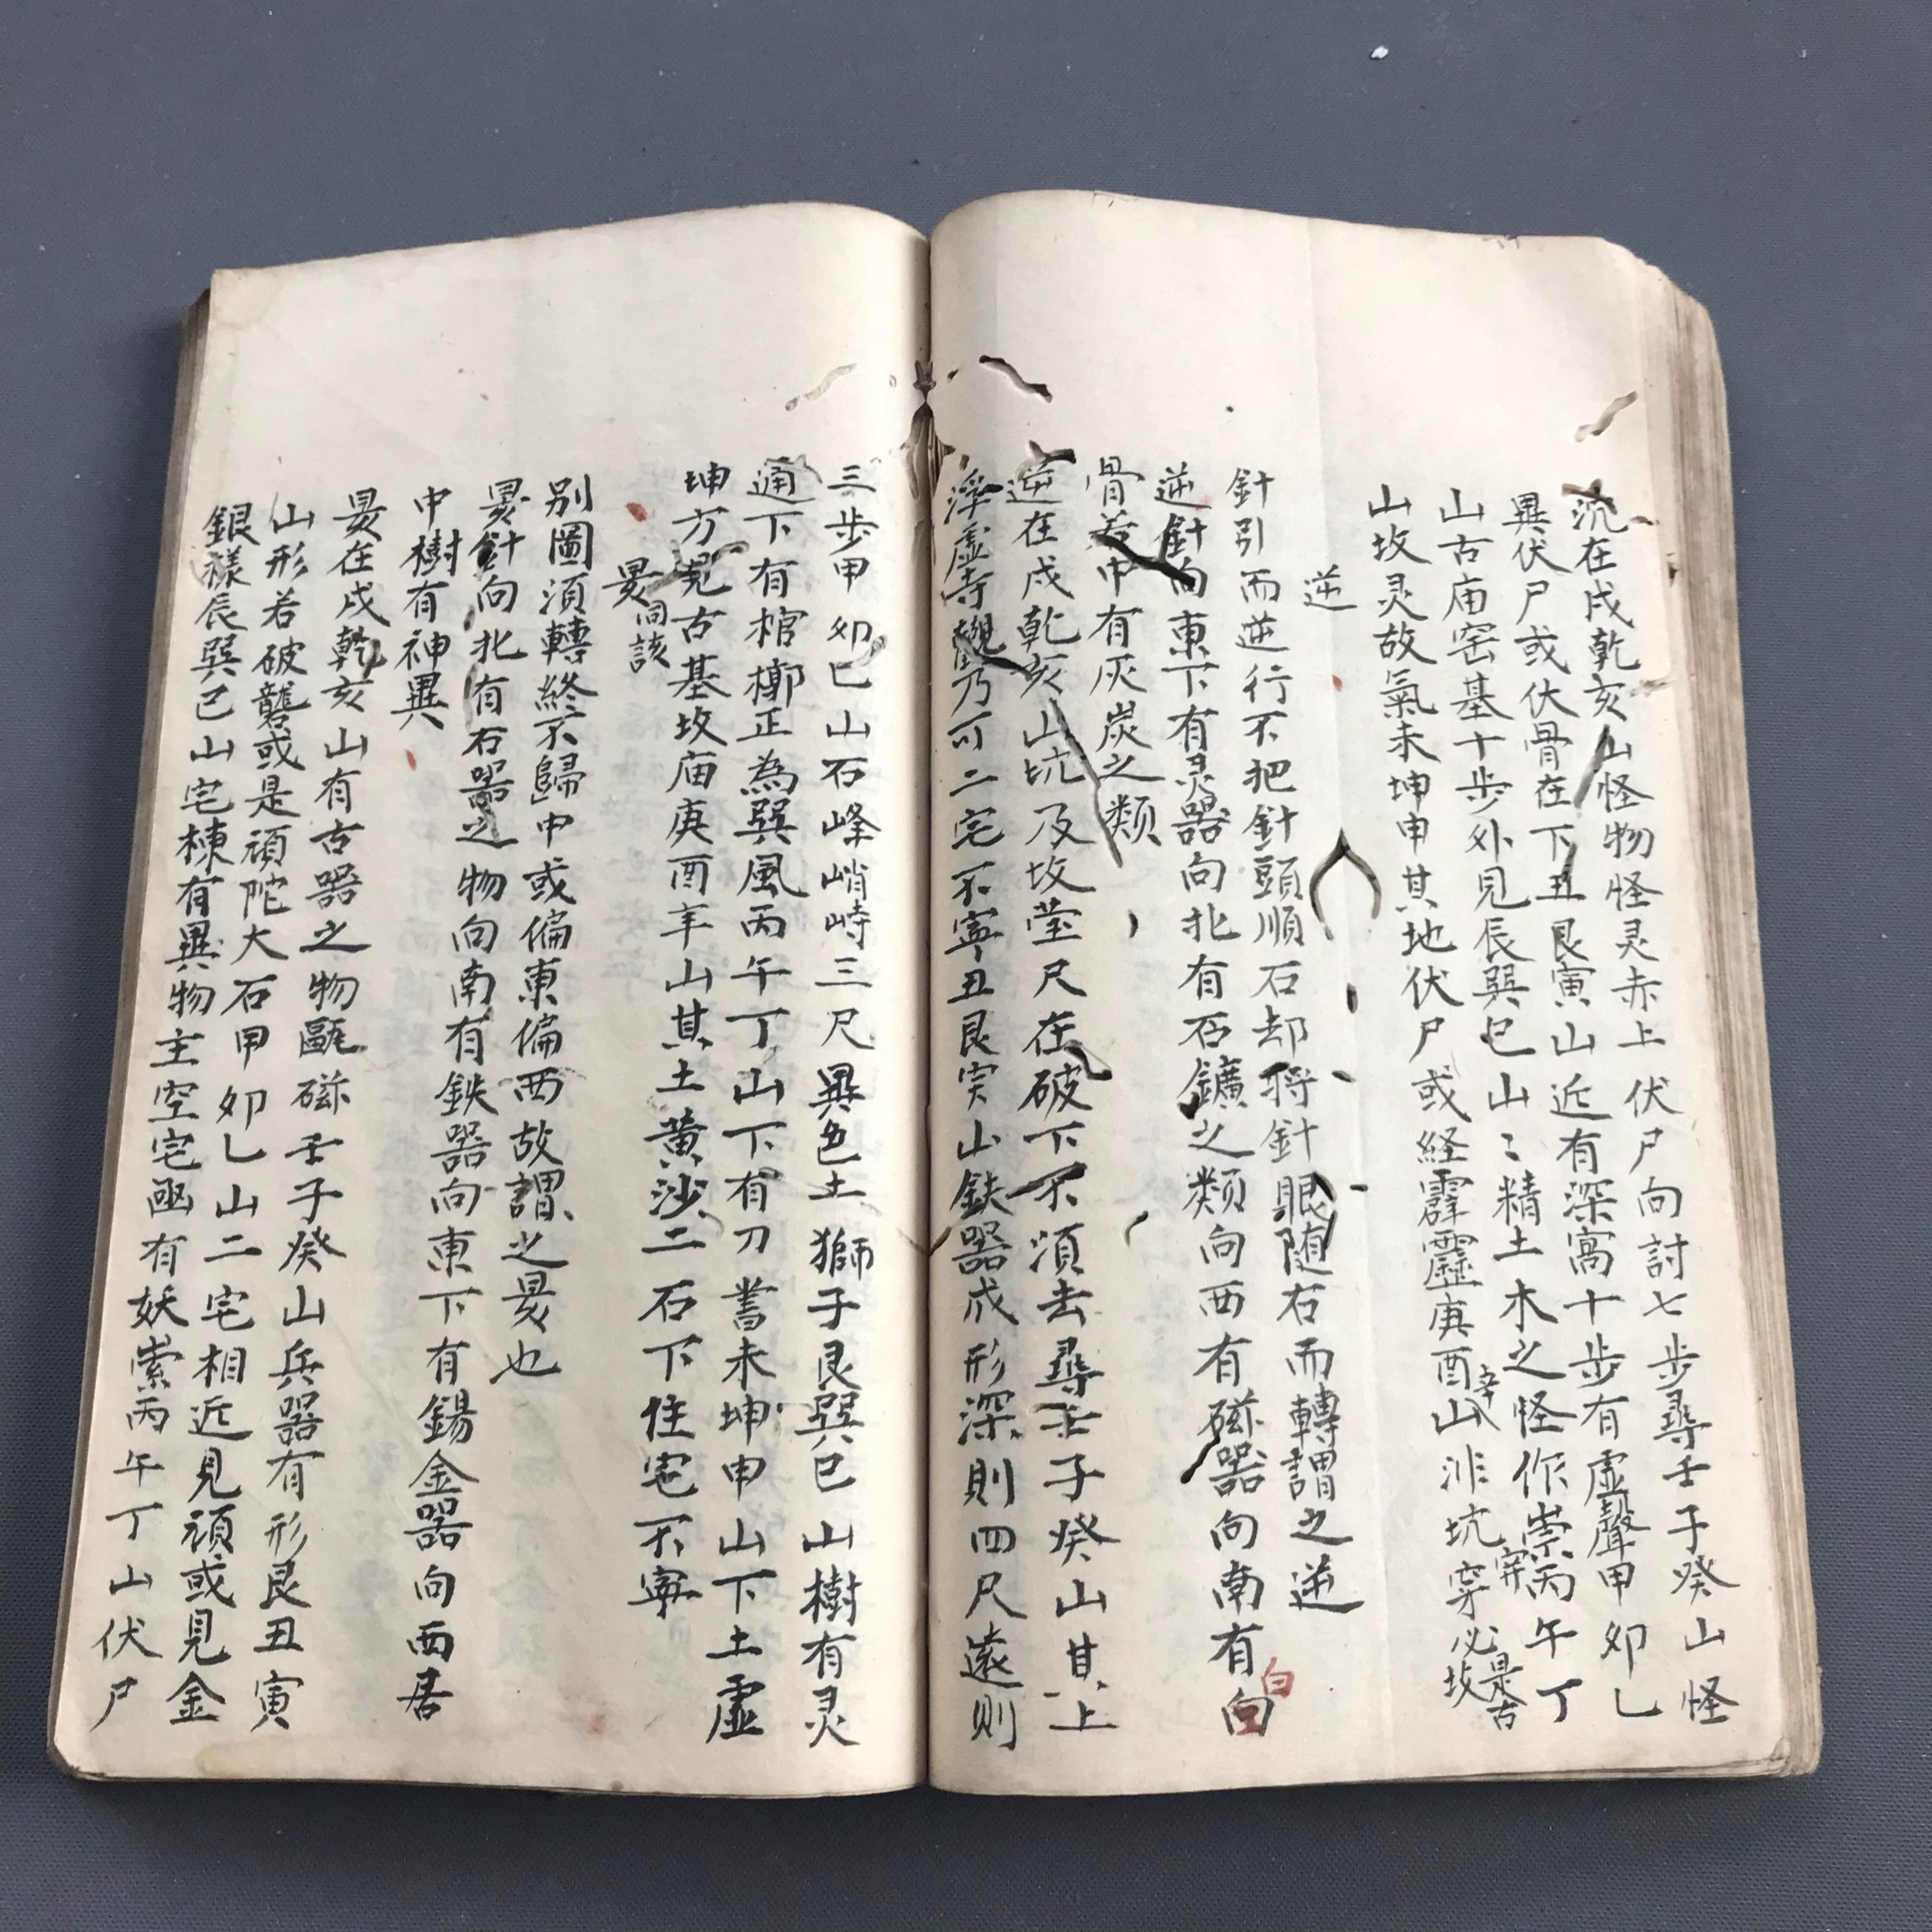 沉在戌乾亥山怪物怪灵赤上伏尸向討七步尋壬子癸山怪
異伏尸或伏骨在下丑艮寅山近有深窩十步有虛聲甲卯乙
山古庙窑基十步外見辰巽巳山〻精土木之怪作祟丙午丁
山坟灵故氣未坤申其地伏尸或経霹靂庚酉辛山非坑穿必是古坟
逆
針引而逆行不把針頭順石却将針眼随右而轉謂之逆
逆針向東下有灵器向北有石鑛之類向西有磁器向南有白
骨若中有灰炭之類
逆在戌乾亥山坑及坟茔尺在破下不須去尋壬子癸山其上
浮虛寺觀乃可二宅不寧丑艮寅山鉄器成形深則四尺遠則
三步甲卯巳山石峰峭峙三尺異色土獅子艮巽巳山樹有灵
通下有棺槨正為巽風丙午丁山下有刀書未坤申山下土虛
坤方見古基坟庙庚酉辛山其土黄沙二石下住宅不寧
㫼同該
別圖須轉終不歸中或偏東偏西故謂之㫼也
㫼針向北有石器之物向南有鉄器向東下有錫金器向西居
中樹有神異
㫼在戌乾亥山有古器之物甌磁壬子癸山兵器有形艮丑寅
山形若破礱或是頑陀大石甲卯乙山二宅相近見頑或見金
銀樣辰巽巳山宅棟有異物主空宅凾有妖祟丙午丁山伏尸